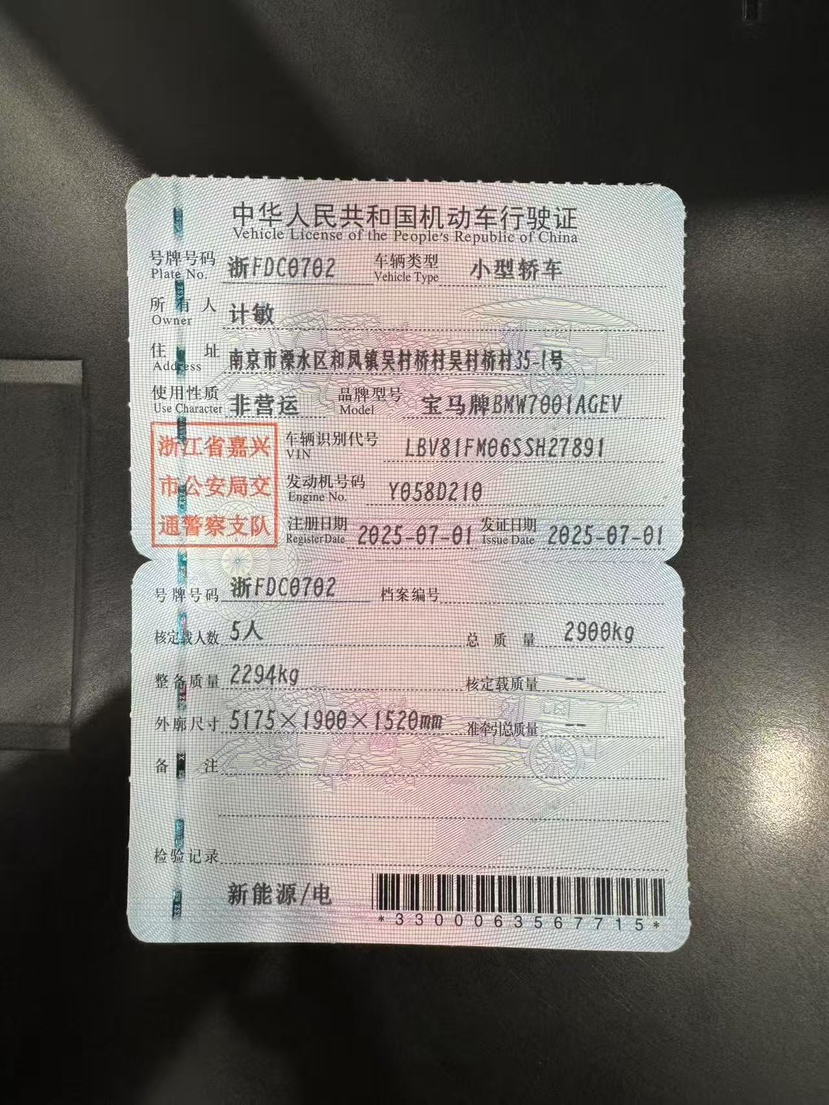 中华人民共和国机动车行驶证
Vehicle License of the People's Republic of China
号牌号码 浙FDC0702 车辆类型 小型轿车
Plate No. Vehicle Type
所有人 计敏
Owner
住址 南京市溧水区和凤镇吴村桥村吴村桥村35-1号
Address
使用性质 非营运 品牌型号 宝马牌BMW7001AGEV
Use Character Model
浙江省嘉兴
市公安局交
通警察支队
车辆识别代号 LBV81FM06SSH27891
VIN
发动机号码 Y058D210
Engine No.
注册日期 2025-07-01 发证日期 2025-07-01
Register Date Issue Date
号牌号码 浙FDC0702 档案编号
核定载人数 5人 总质量 2900kg
整备质量 2294kg 核定载质量 --
外廓尺寸 5175×1900×1520mm 准牵引总质量 --
备注
检验记录
新能源/电
*3300063567715*